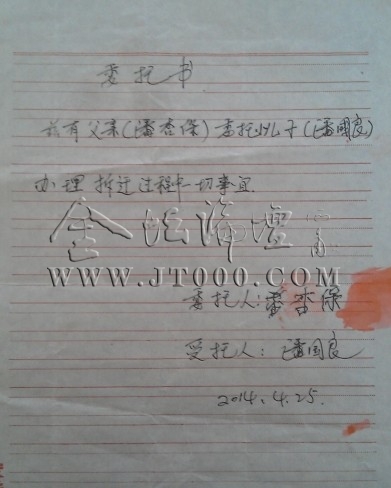 委托书
兹有父亲(潘杏保)委托儿子(潘国良)
办理拆迁过程中一切事宜
金坛论坛
WWW.JT000.COM
委托人:潘杏保
受托人:潘国良
2014.4.25.